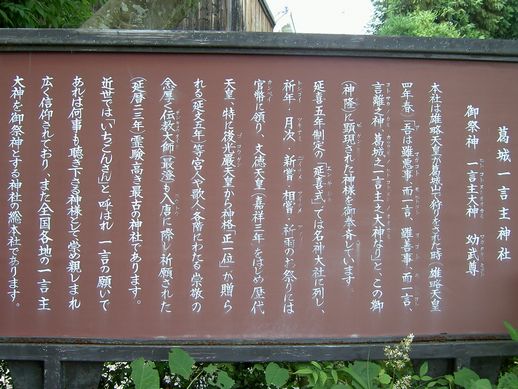 葛城一言主神社
御祭神 一言主大神 幼武尊
本社は雄略天皇が葛城山で狩りをされた時（雄略天皇
四年春）「吾は雖悪事 而一言、雖善事 而一言、
言離之神 葛城之一言主之大神なり」と、この御
（神降）に顕現された神様を御奉祀しています。
延喜五年制定の「延喜式」では名神大社に列し、
祈年・月次・新嘗・相嘗・祈雨のお祭りには
官幣に預り、文徳天皇（嘉祥三年）をはじめ歴代
天皇、特に後光厳天皇から神格「正一位」が贈ら
れる（延文五年）等、宮人や歌人各階にわたる崇敬の
念厚く伝教大師（最澄）も入唐に際し祈願された
（延暦二三年）霊験高き最古の神社であります。
近世では「いちごんさん」と呼ばれ 一言の願いで
あれば何事も聴き下さる神様として崇め親しまれ
広く信仰されており、また全国各地の一言主
大神を御祭神とする神社の総本社であります。